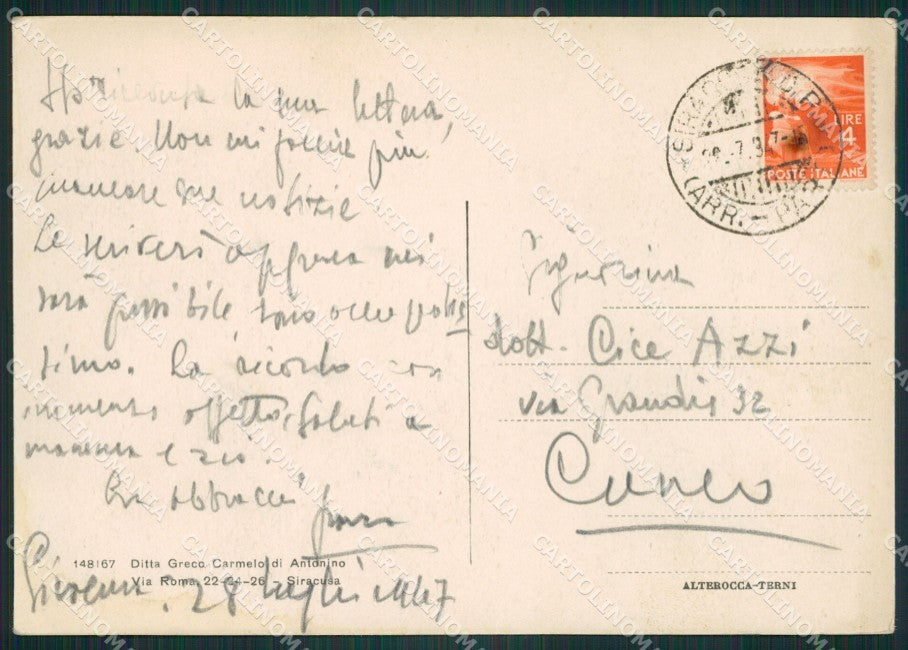 Ho ricevuto la sua lettera,
grazie. Non mi faccia più
mancare sue notizie
Le scriverò appena mi
sarà possibile, sono occupatis
simo. La ricordo con
immenso affetto, saluti a
mamma e zio.
Un abbraccio
Siracusa, 28 luglio 1947
148167 Ditta Greco Carmelo di Antonino
Via Roma, 22-24-26 - Siracusa
SIRACUSA
(ARR.
LIRE
4
POSTE ITALIANE
Signorina
dott. Cice Azzi
via Grandis 32
Cuneo
ALTEROCCA-TERNI
CARTOLINOMANIA